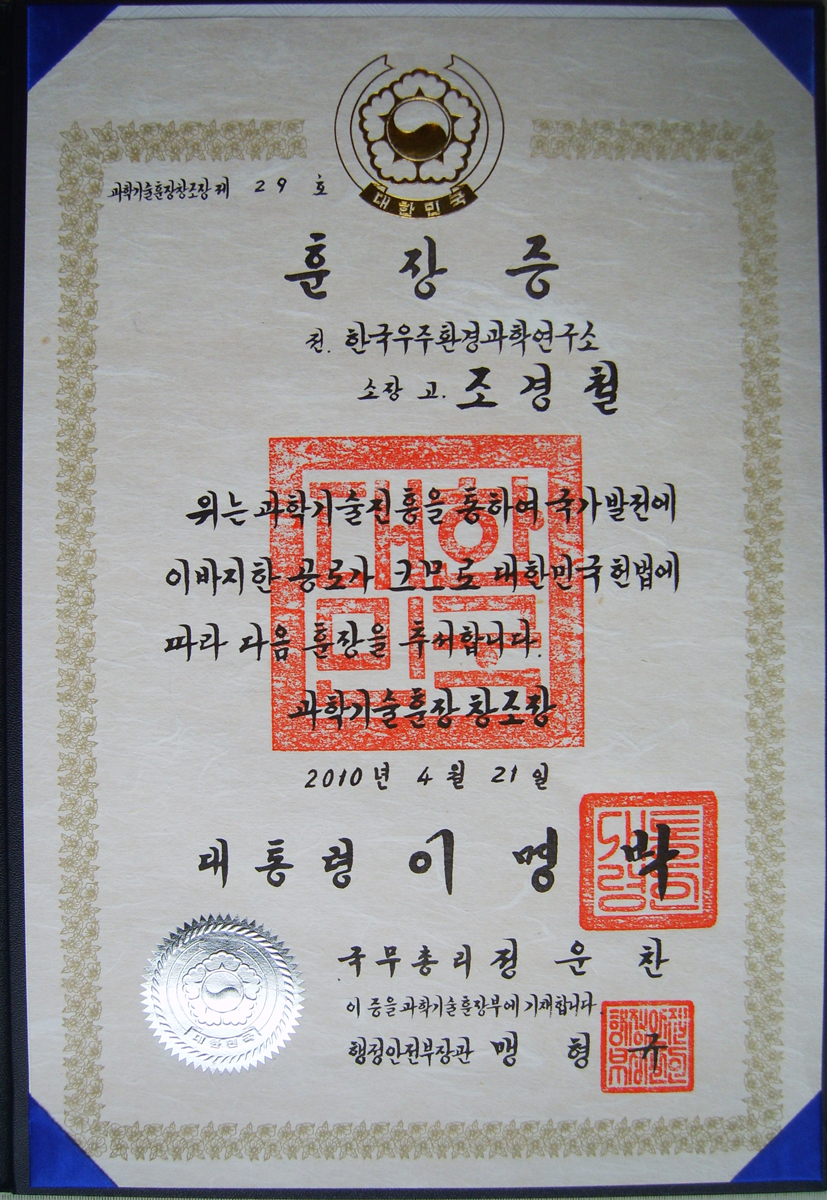 대한민국
과학기술훈장창조장 제 29 호
훈장증
전. 한국우주환경과학연구소
소장 고. 조경철
위는 과학기술진흥을 통하여 국가발전에
이바지한 공로가 크므로 대한민국 헌법에
따라 다음 훈장을 추서합니다.
과학기술훈장 창조장
2010년 4월 21일
대통령 이명박
국무총리 정운찬
이 증을 과학기술훈장부에 기재합니다.
행정안전부장관 맹형규
대한민국
대한민국